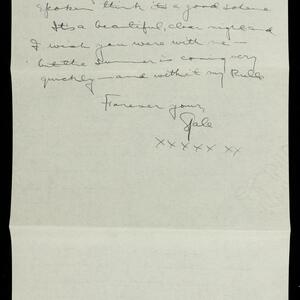 spoken think it's a good scheme
It's a beautiful, clear night and
I wish you were with me –
but the Summer is coming very
quickly – and with it my Rube
Forever your,
Gale
x x x x x x x